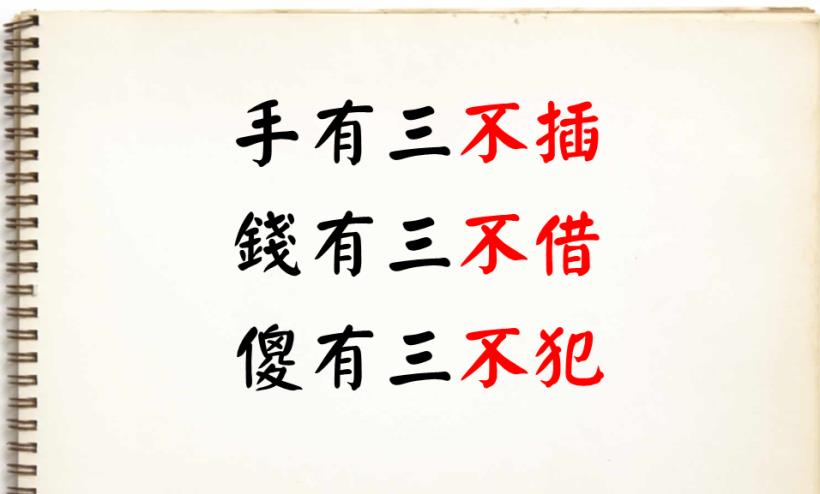 手有三不插
錢有三不借
傻有三不犯